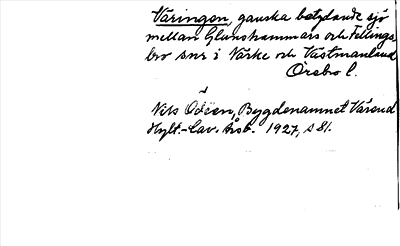 Väringen, ganska betydande sjö
mellan Glanshammars och Fellings
bro snr i Närke och Västmanland
Örebro l.
Nils Odéen, Bygdenamnet Värend
Hylt.-Cav. Årsb. 1927, s 81.